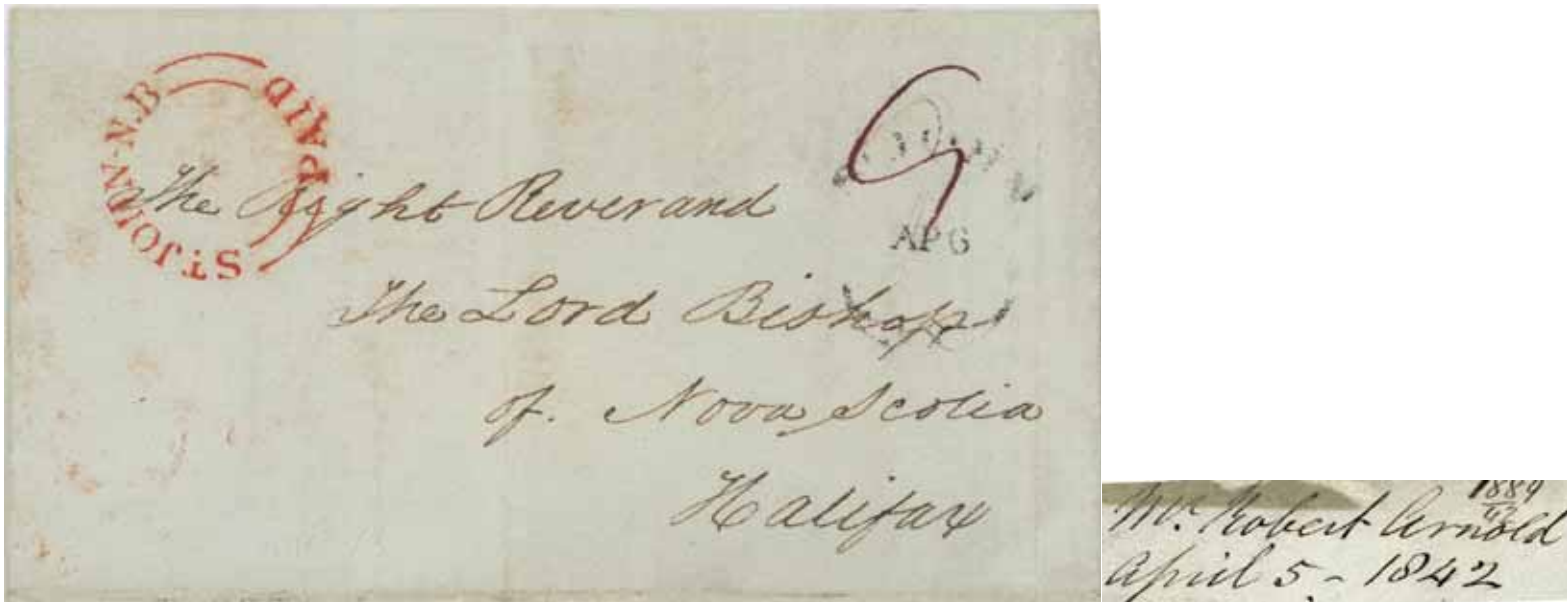 PAID
ST JOHN·N.B
9
AP 6
The Right Reverand
The Lord Bishop
of. Nova Scotia
Halifax
1889
Mr. Robert Arnold
April 5 - 1842